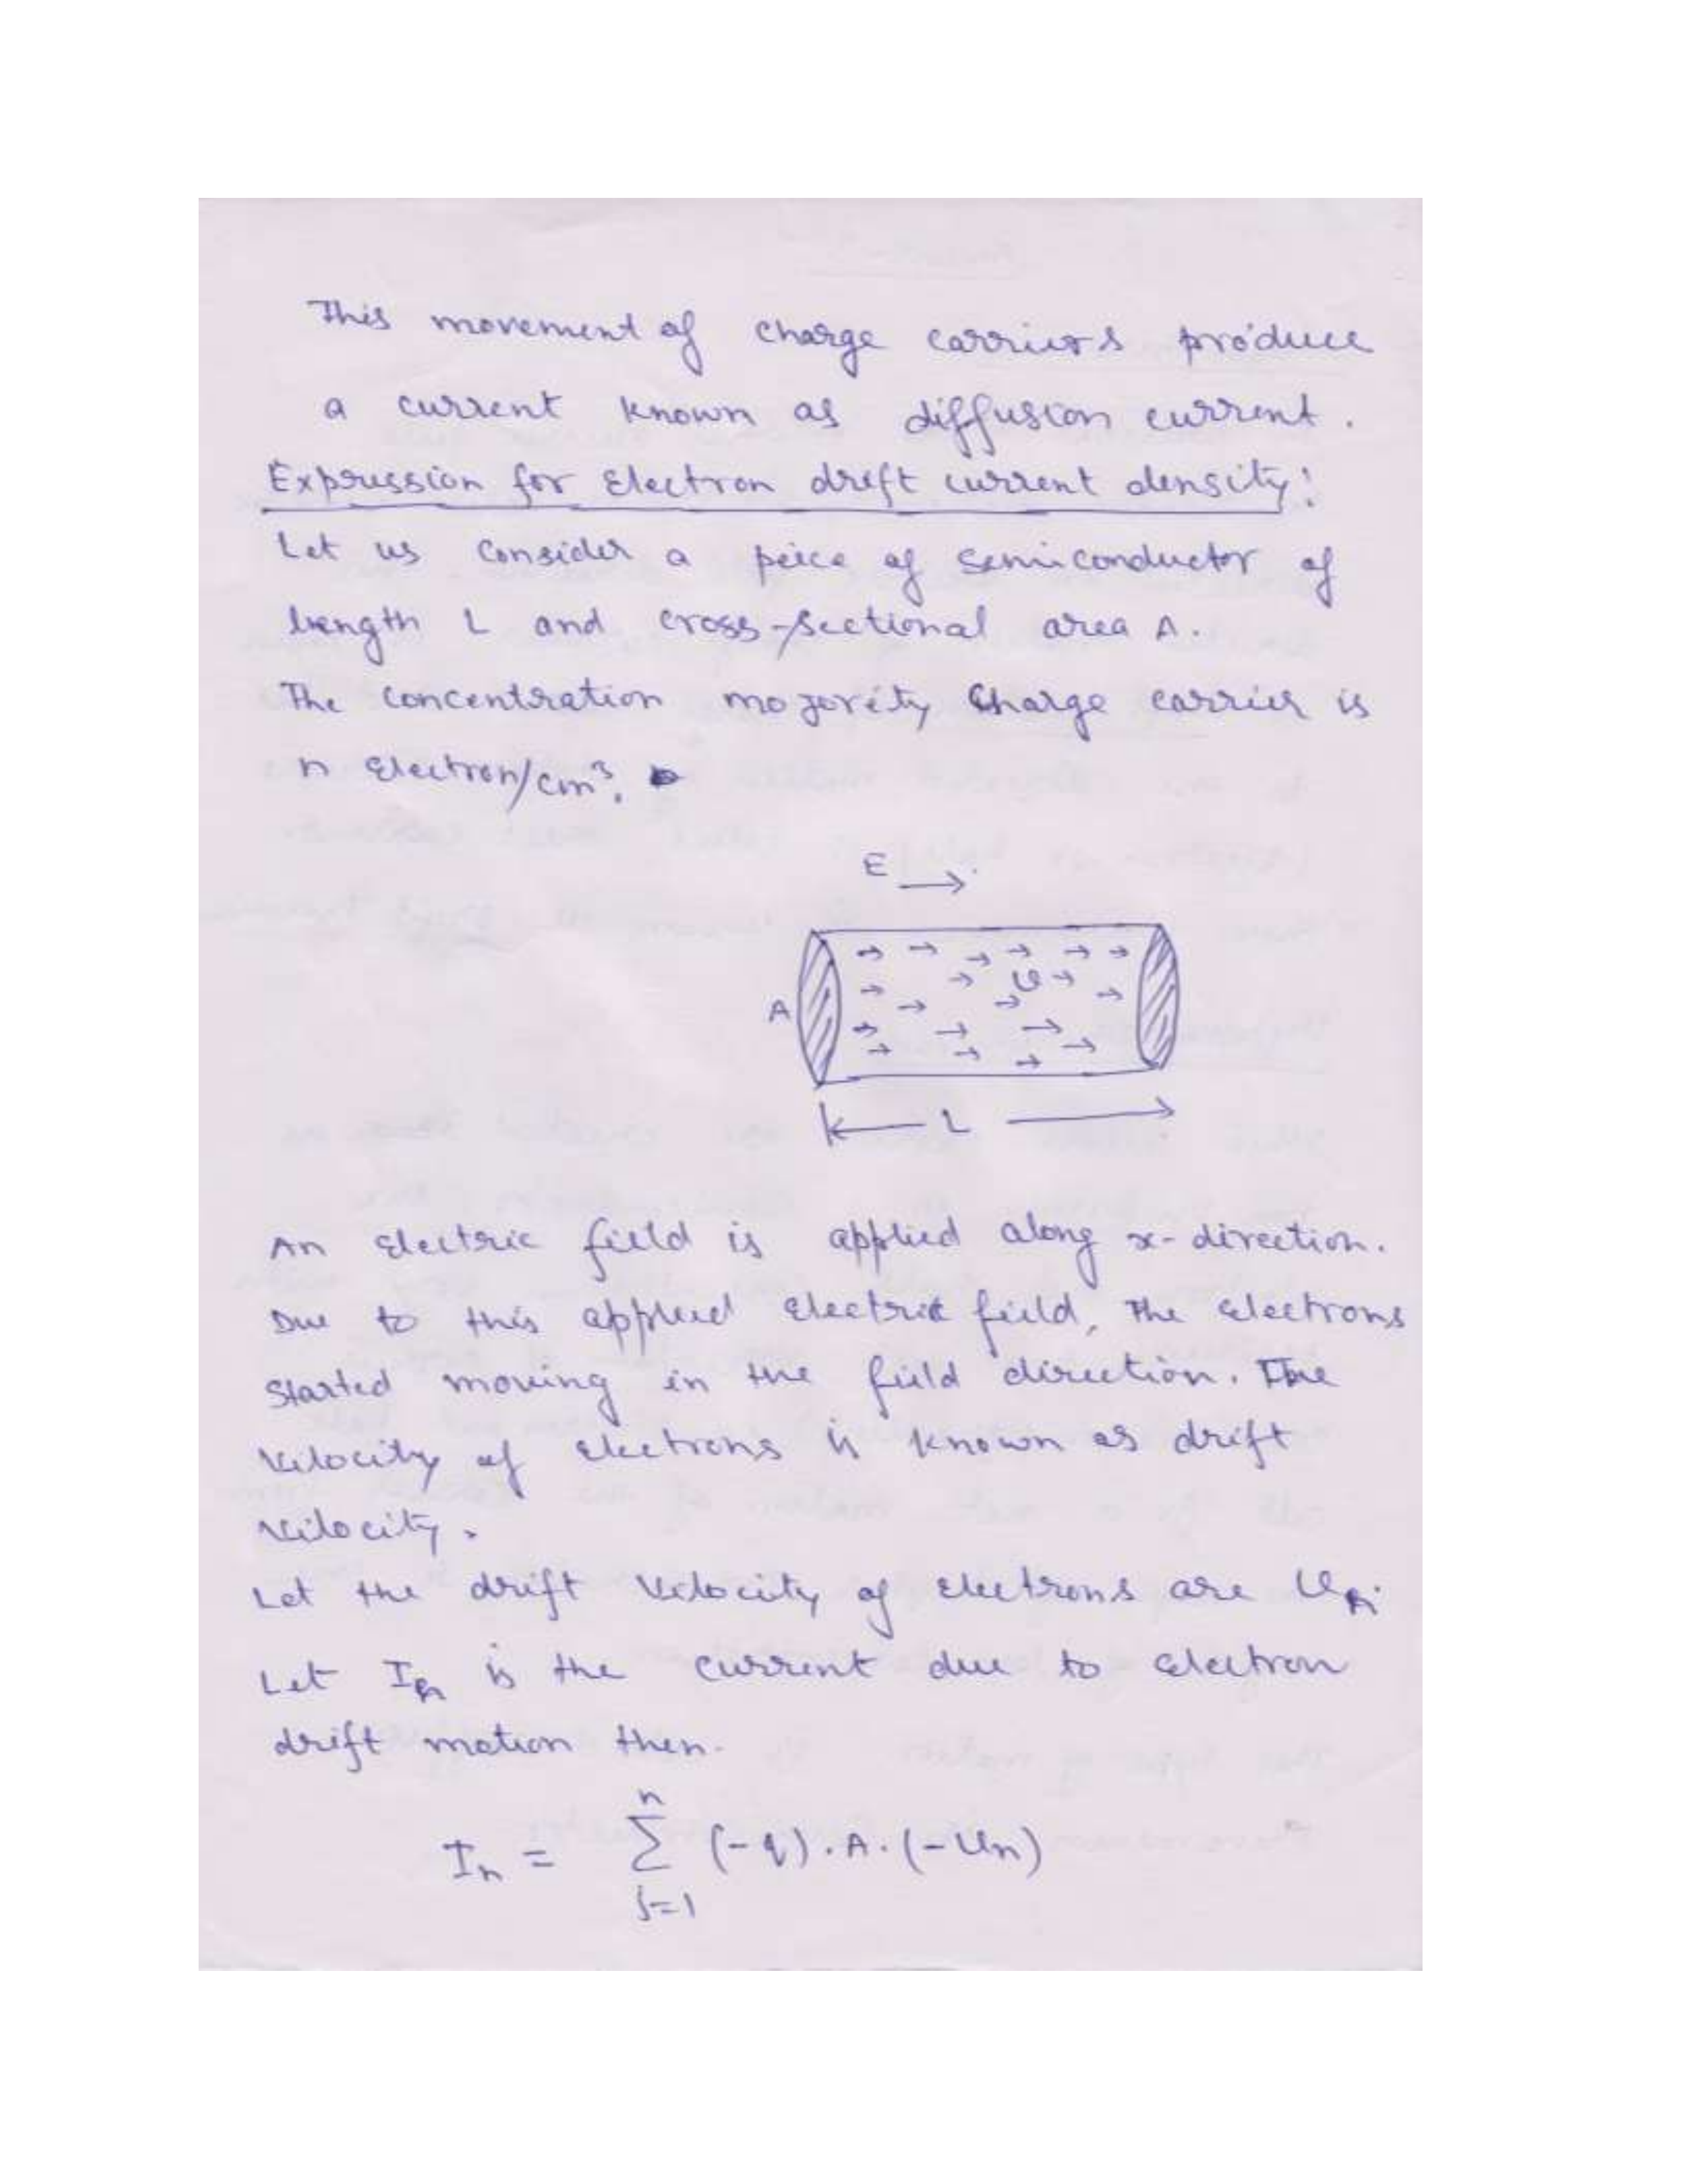 This movement of charge carriers produce
a current known as diffusion current.
Expression for Electron drift current density:
Let us consider a peice of semiconductor of
length L and cross-sectional area A.
The concentration majority charge carrier is
n electron/cm³.
E →
A
υ
L
An electric field is applied along x-direction.
Due to this applied electric field, the electrons
started moving in the field direction. The
velocity of electrons is known as drift
velocity.
Let the drift velocity of electrons are υn.
Let In is the current due to electron
drift motion then.
n
In = Σ (-q).A.(-υn)
j=1